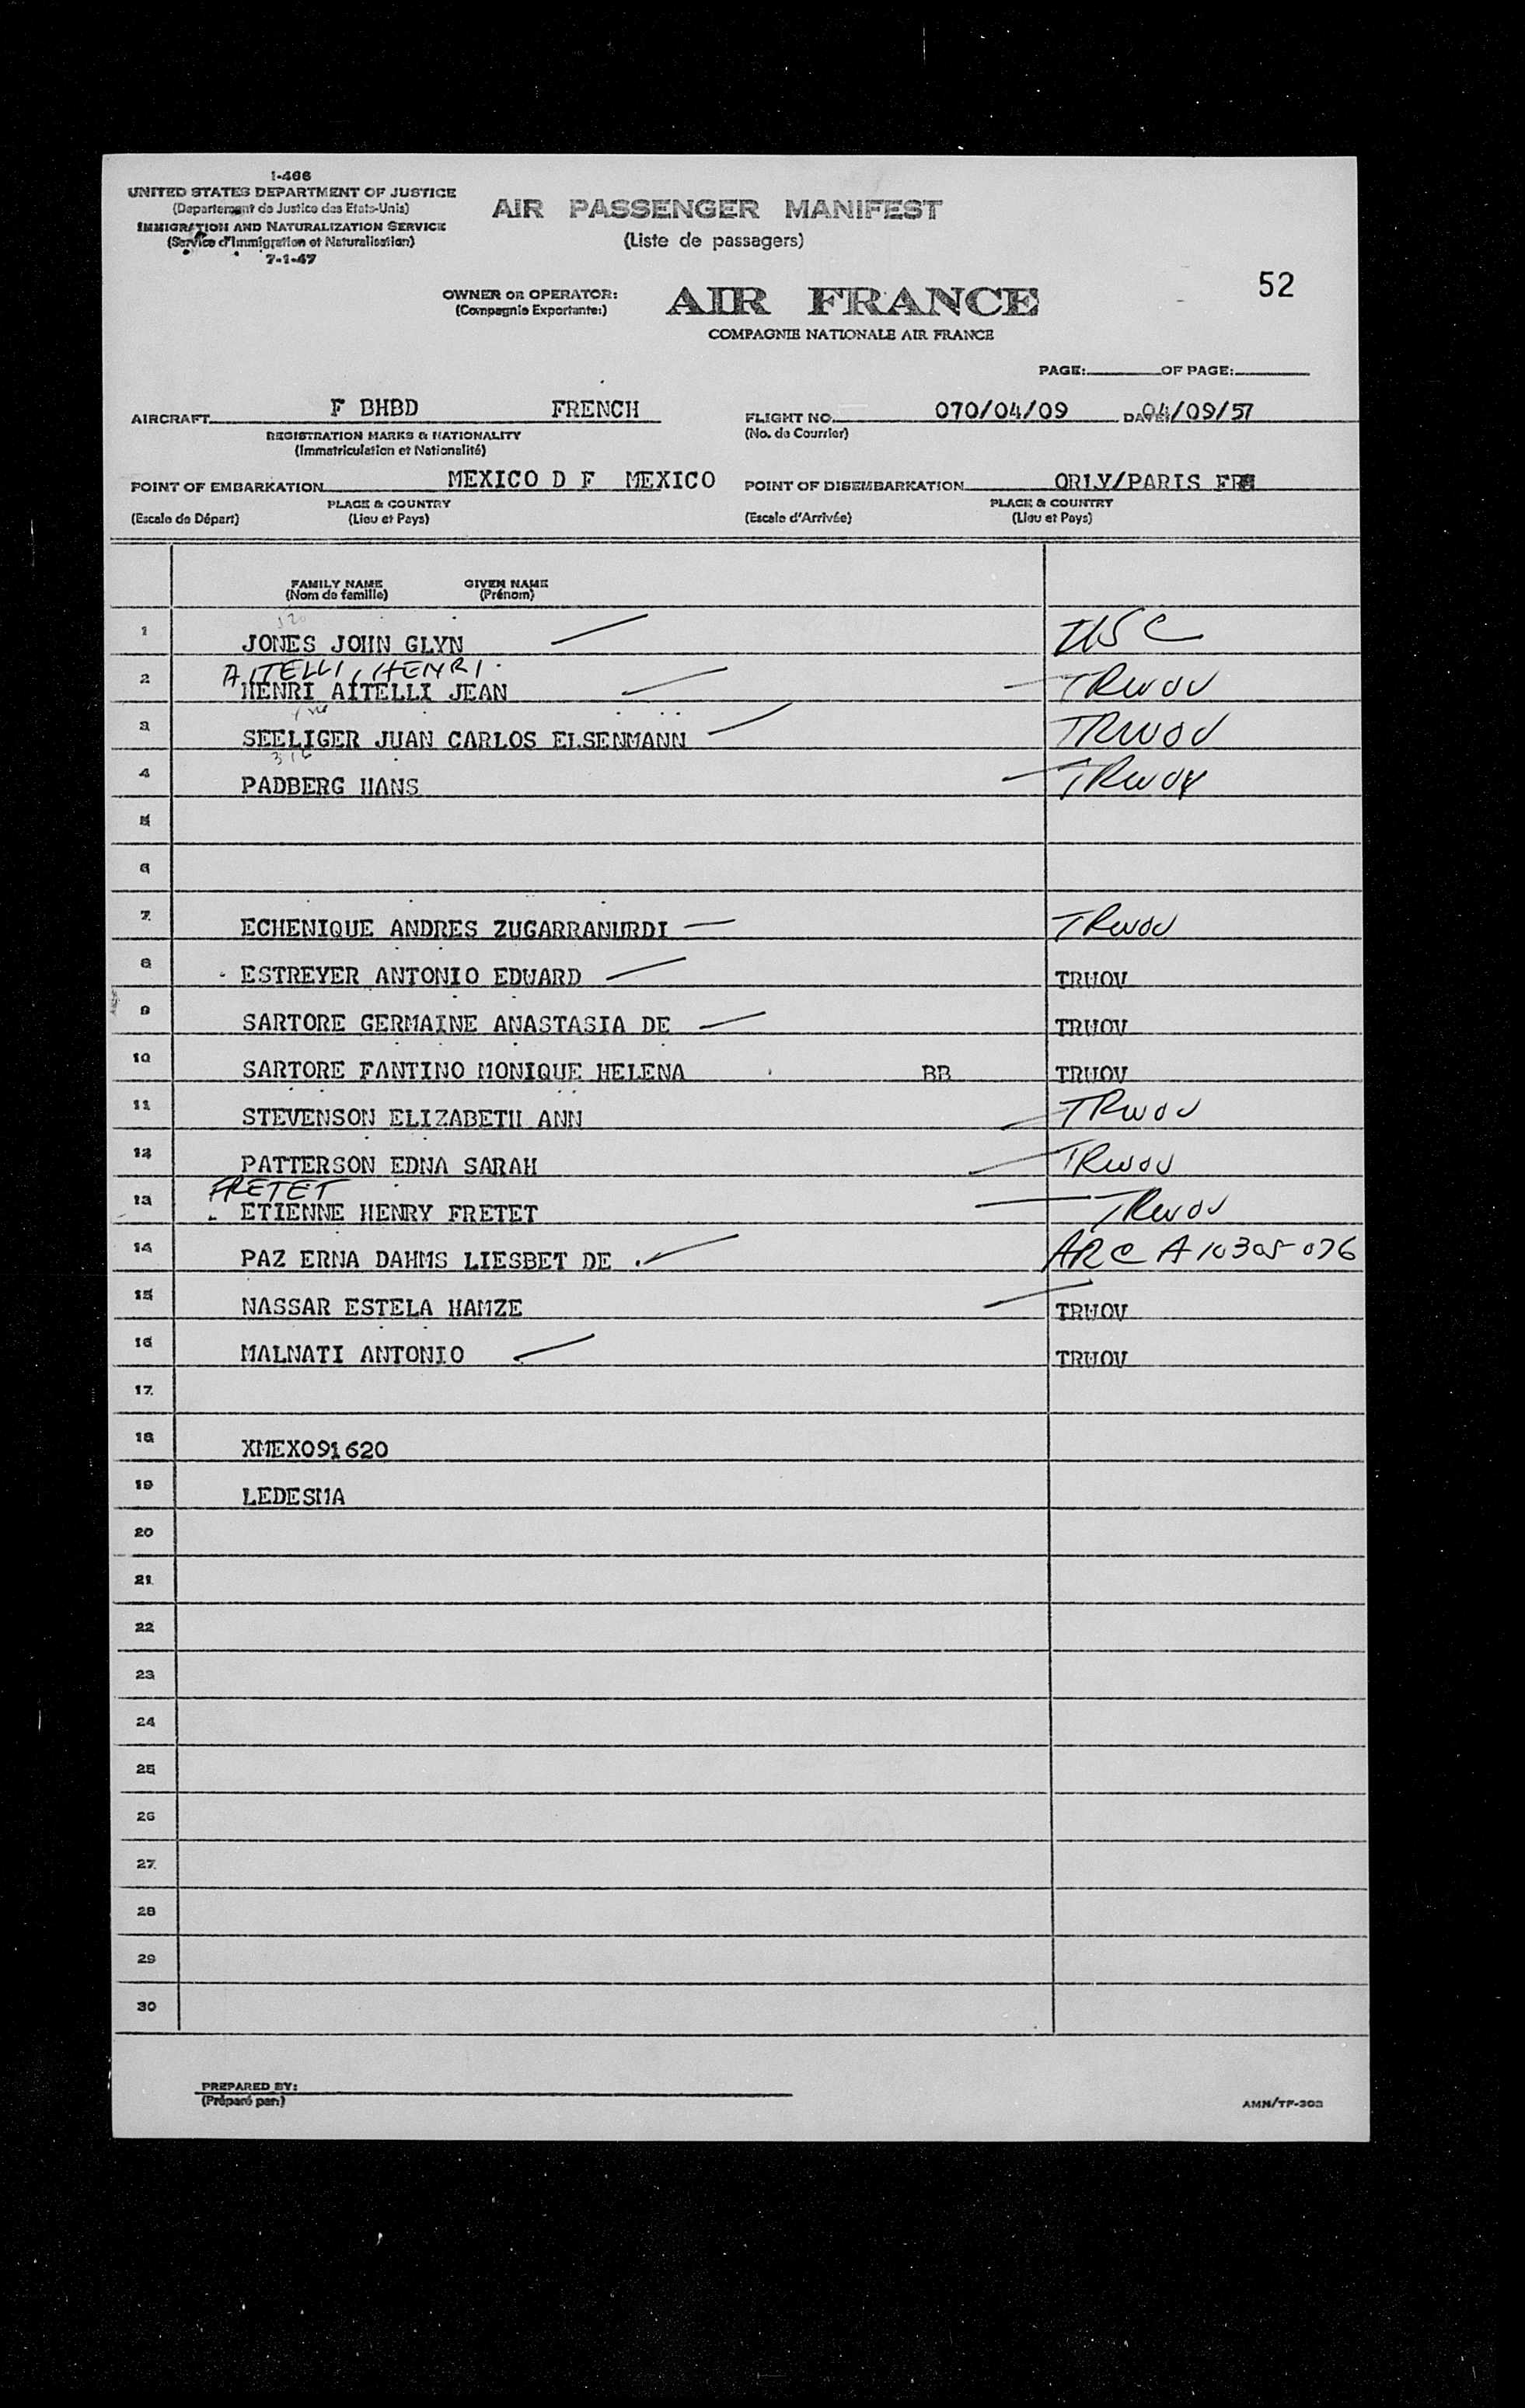 I-466
UNITED STATES DEPARTMENT OF JUSTICE
(Departement de Justice des Etats-Unis)
IMMIGRATION AND NATURALIZATION SERVICE
(Service d'Immigration et Naturalisation)
7-1-47
AIR PASSENGER MANIFEST
(Liste de passagers)
52
OWNER OR OPERATOR: AIR FRANCE
(Compagnie Exportante:)
COMPAGNIE NATIONALE AIR FRANCE
PAGE: OF PAGE:
AIRCRAFT F BHBD FRENCH FLIGHT NO. 070/04/09 DATE: 04/09/57
REGISTRATION MARKS & NATIONALITY (No. de Courrier)
(Immatriculation et Nationalité)
POINT OF EMBARKATION MEXICO D F MEXICO POINT OF DISEMBARKATION ORLY/PARIS FR
PLACE & COUNTRY PLACE & COUNTRY
(Escale de Départ) (Lieu et Pays) (Escale d'Arrivée) (Lieu et Pays)
FAMILY NAME GIVEN NAME
(Nom de famille) (Prénom)
1 JONES JOHN GLYN USC
AITELLI, HENRI
2 HENRI AITELLI JEAN TRWOV
3 SEELIGER JUAN CARLOS EISENMANN TRWOV
316
4 PADBERG HANS TRWOV
5
6
7 ECHENIQUE ANDRES ZUGARRANURDI TRWOV
8 ESTREYER ANTONIO EDUARD TRWOV
9 SARTORE GERMAINE ANASTASIA DE TRWOV
10 SARTORE FANTINO MONIQUE HELENA BB TRWOV
11 STEVENSON ELIZABETH ANN TRWOV
12 PATTERSON EDNA SARAH TRWOV
FRETET
13 ETIENNE HENRY FRETET TRWOV
14 PAZ ERNA DAHMS LIESBET DE ARC A 10305 076
15 NASSAR ESTELA HAMZE TRWOV
16 MALNATI ANTONIO TRWOV
17
18 XMEX091620
19 LEDESMA
20
21
22
23
24
25
26
27
28
29
30
PREPARED BY:
(Préparé par:)
AMN/TF-303